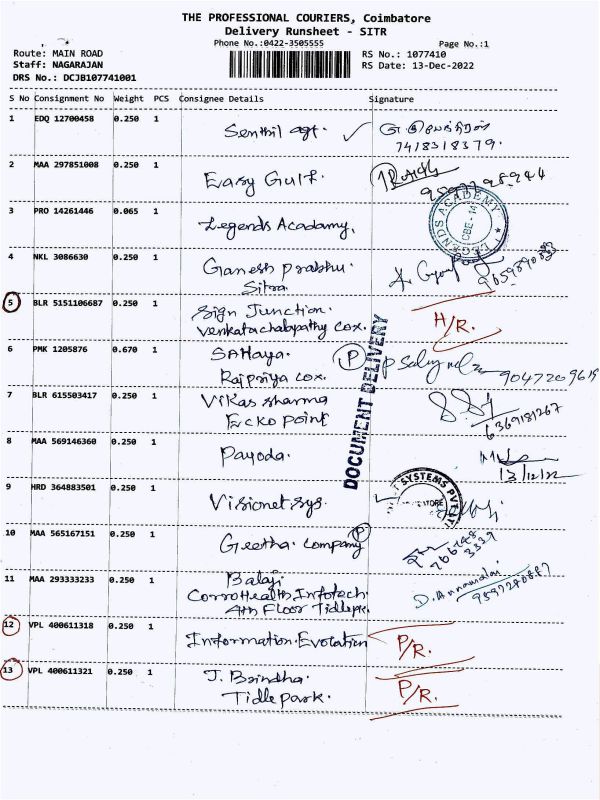 THE PROFESSIONAL COURIERS, Coimbatore
Delivery Runsheet - SITR
Phone No.:0422-3505555
Page No.:1
Route: MAIN ROAD
RS No.: 1077410
Staff: NAGARAJAN
RS Date: 13-Dec-2022
DRS No.: DCJB107741001
S No Consignment No Weight PCS Consignee Details Signature
1 EDQ 12700458 0.250 1 Senthil agt.
7418318379.
2 MAA 297851008 0.250 1 Easy Gulf.
3 PRO 14261446 0.065 1 Legends Acadamy.
LEGENDS ACADEMY CBE-14
4 NKL 3086630 0.250 1 Ganesh prabhu.
Sitra.
5 BLR 5151106687 0.250 1 Sign Junction.
Venkatachalapathy cox.
H/R.
6 PMK 1205876 0.670 1 SAHaya. P
Rajpriya cox.
DOCUMENT DELIVERY
7 BLR 615503417 0.250 1 Vikas sharma
Ecko point
6369181267
8 MAA 569146360 0.250 1 Payoda.
13/12/22
9 HRD 364883501 0.250 1 Visionet sys.
SYSTEMS PVT
10 MAA 565167151 0.250 1 Geetha. company P
11 MAA 293333233 0.250 1 Balaji
CorroHealth Infotech
4th Floor Tidlepk.
D. Annamalai
12 VPL 400611318 0.250 1 Information.Evolation P/R.
13 VPL 400611321 0.250 1 J. Brindha.
Tidle park.
P/R.